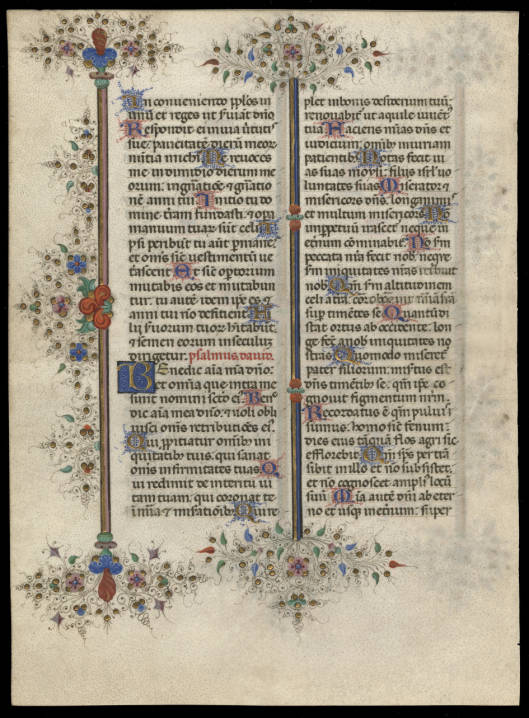 In conueniendo pplos in
unū et reges ut suiāt dnō.
Respondit ei in uia uirtutis
sue: paucitatē dierum meor
nuntia michi. Ne reuoces
me in dimidio dierum me
orum: in gnatiōe & gnatio
nē anni tui. Initio tu do
mine terram fundasti: & opa
manuum tuar sūt celi. Ip
psi peribūt tu aūt pmanes:
et omīs sic uestimentū ue
terascent. Et sic optorium
mutabis eos et mutabun
tur: tu autē idem ipe es &
anni tui nō deficient. Fi
lii suorum tuor hitabūt:
& semen eorum in seculūz
dirigetur. psalmus dauid.
Benedic aīa mea dnō:
et omnia que intra me
sunt nomini scō eī. Bene
dic aīa mea dnō: & noli obli
uisci omīs retributiōes eī.
Qui ppitiatur omībz in
quitatibz tuis: qui sanat
omīs infirmitates tuas. Q
ui redimit de interitu ui
tam tuam: qui coronat te
in mīa & misatioībz. Qui re
plet in bonis desiderium tuū:
renouabit ut aquile iuuen
tus tua. Faciens mīas dns et
iudicium: omībz iniuriam
patientibz. Notas fecit ui
as suas moysi: filiis isrl uo
luntates suas. Miserator &
misericors dns: longanimis
et multum misericors. Non
in ppetuū irascet: neque in
eternum cominabit. Nō sm
peccata nra fecit nob: neque
sm iniquitates nras retribuit
nob. Qm sm altitudinem
celi a terra: corroborauit mīam suā
sup timētes se. Quantū di
stat ortus ab occidente: lon
ge fec a nob iniquitates no
stras. Quomodo miseret
pater filiorum: misertus est
dns timētibz se: qm ipe co
gnouit figmentum nrm.
Recordatus ē qm puluis
sumus: homo sic fenum
dies eius tāquā flos agri sic
efflorebit. Qm sps per trā
sibit in illo et nō subsistet:
et nō cognoscet amplius locū
suū. Mīa autē dni ab eter
no et usqz in eternum: super